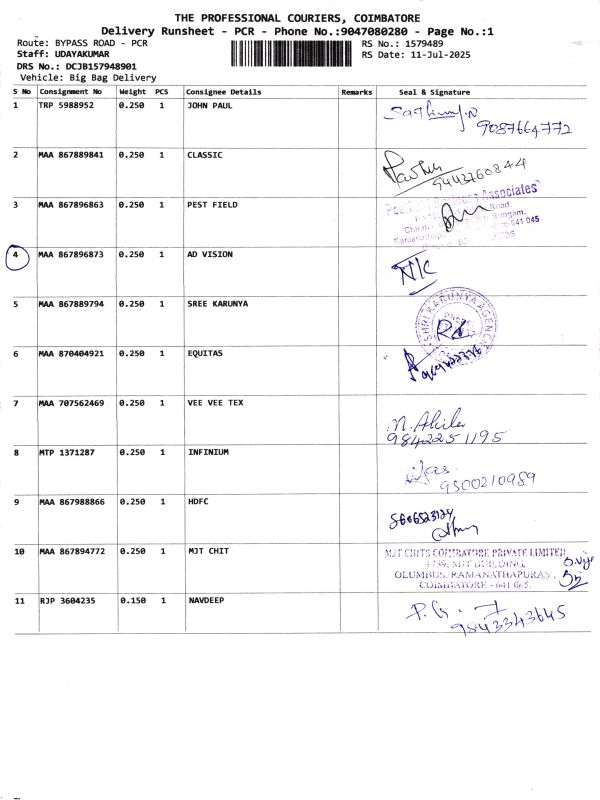 THE PROFESSIONAL COURIERS, COIMBATORE
Delivery Runsheet - PCR - Phone No.:9047080280 - Page No.:1
Route: BYPASS ROAD - PCR
RS No.: 1579489
Staff: UDAYAKUMAR
RS Date: 11-Jul-2025
DRS No.: DCJB157948901
Vehicle: Big Bag Delivery
S No Consignment No Weight PCS Consignee Details Remarks Seal & Signature
1 TRP 5988952 0.250 1 JOHN PAUL
9087664772
2 MAA 867889841 0.250 1 CLASSIC
9443760844
3 MAA 867896863 0.250 1 PEST FIELD
Associates
Road,
4 MAA 867896873 0.250 1 AD VISION
N/C
5 MAA 867889794 0.250 1 SREE KARUNYA
SHRI KARUNYA AGENCY
6 MAA 870404921 0.250 1 EQUITAS
7 MAA 707562469 0.250 1 VEE VEE TEX
N. Akila
9842251195
8 MTP 1371287 0.250 1 INFINIUM
9500210989
9 MAA 867988866 0.250 1 HDFC
10 MAA 867894772 0.250 1 MJT CHIT
MJT CHITS COIMBATORE PRIVATE LIMITED
MJT BUILDING,
OLUMBUS, RAMANATHAPURAM,
COIMBATORE - 641 045.
11 RJP 3604235 0.150 1 NAVDEEP
9843343645